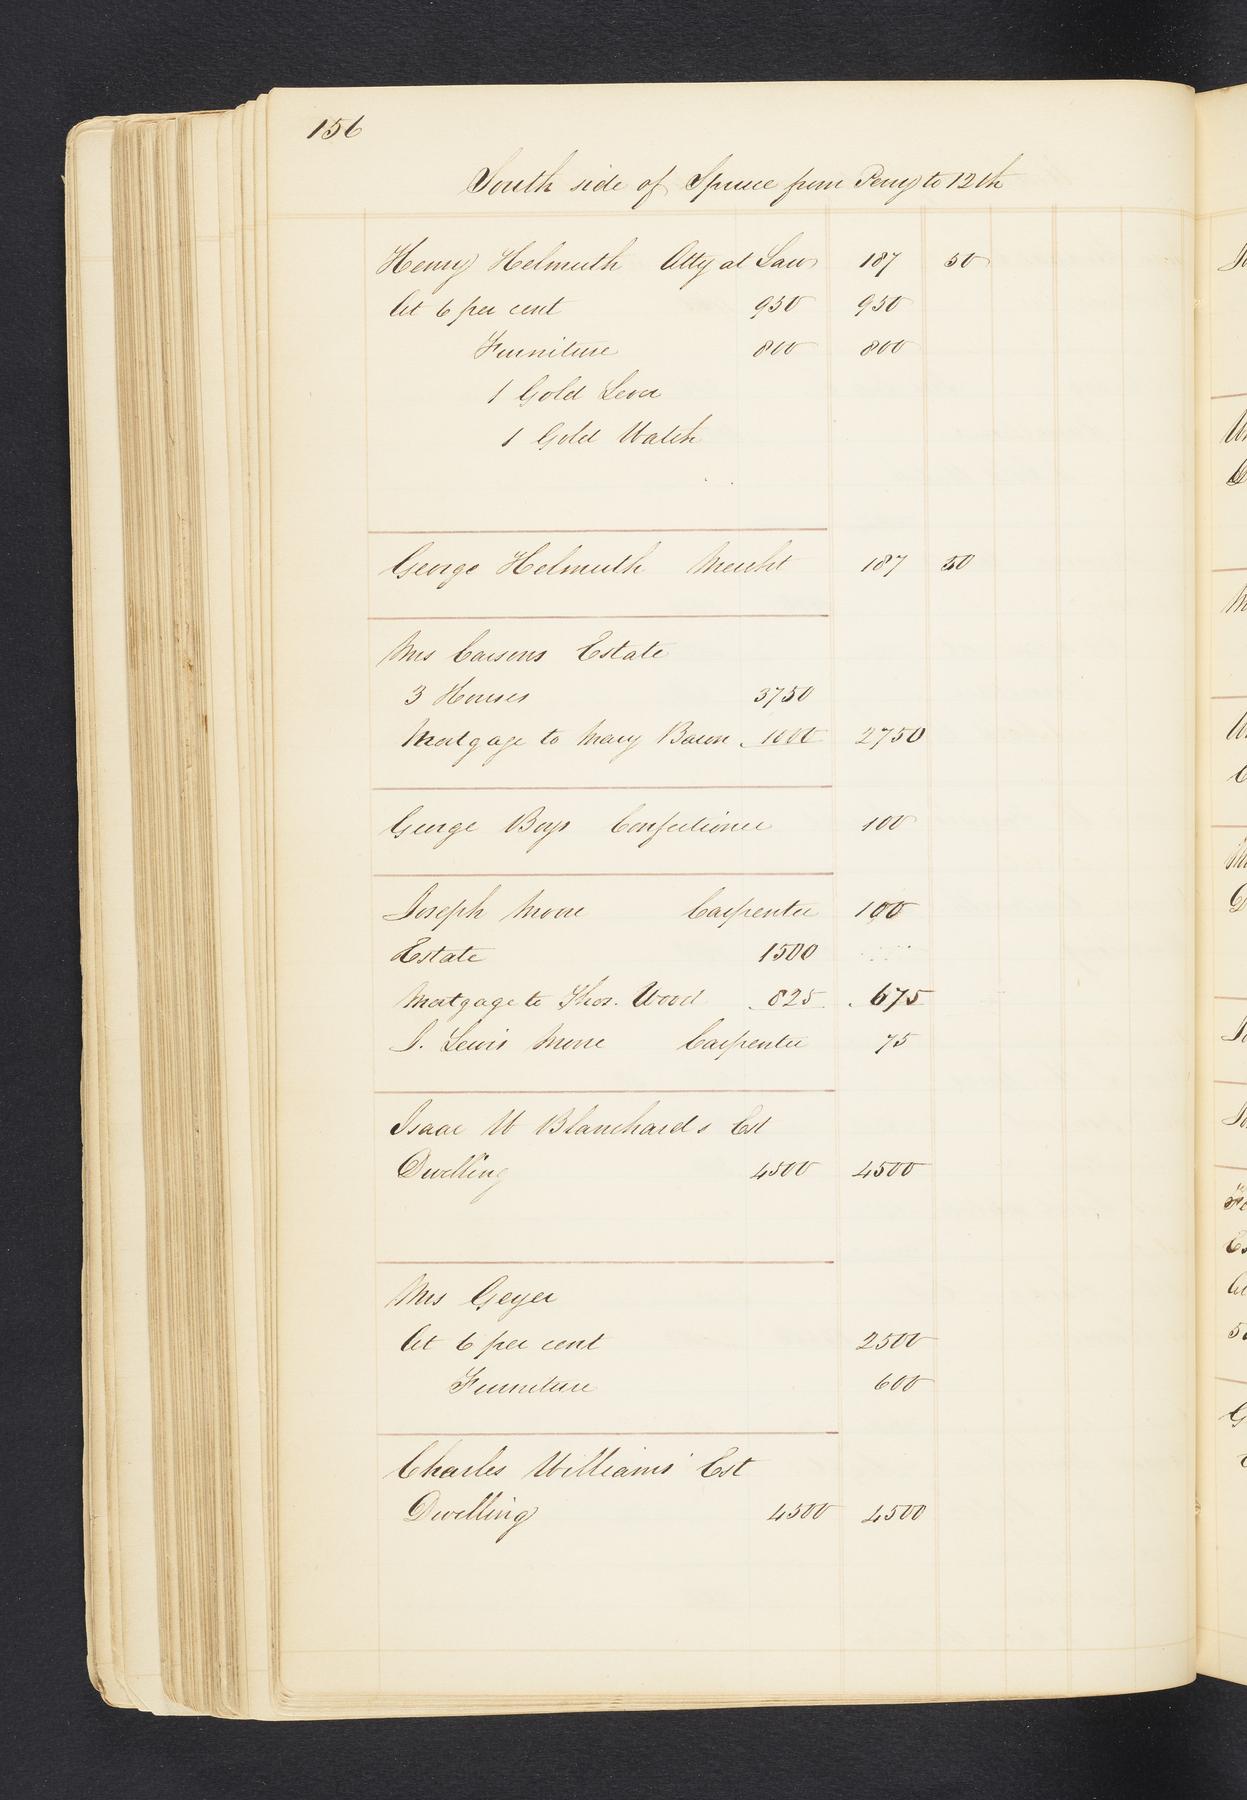 156
South side of Spruce from Perry to 12th
Henry Helmuth Atty at Law 187 50
At 6 per cent 950 950
Furniture 800 800
1 Gold Lever
1 Gold Watch
George Helmuth Mercht 187 50
Mrs Carsons Estate
3 Houses 3750
Mortgage to Mary Bacon 1000 2750
George Boys Confectioner 100
Joseph Moore Carpenter 100
Estate 1500
Mortgage to Thos. Wood 825 675
J. Lewis Moore Carpenter 75
Isaac W Blanchards Est
Dwelling 4500 4500
Mrs Geyer
At 6 per cent 2500
Furniture 600
Charles Williams' Est
Dwelling 4500 4500